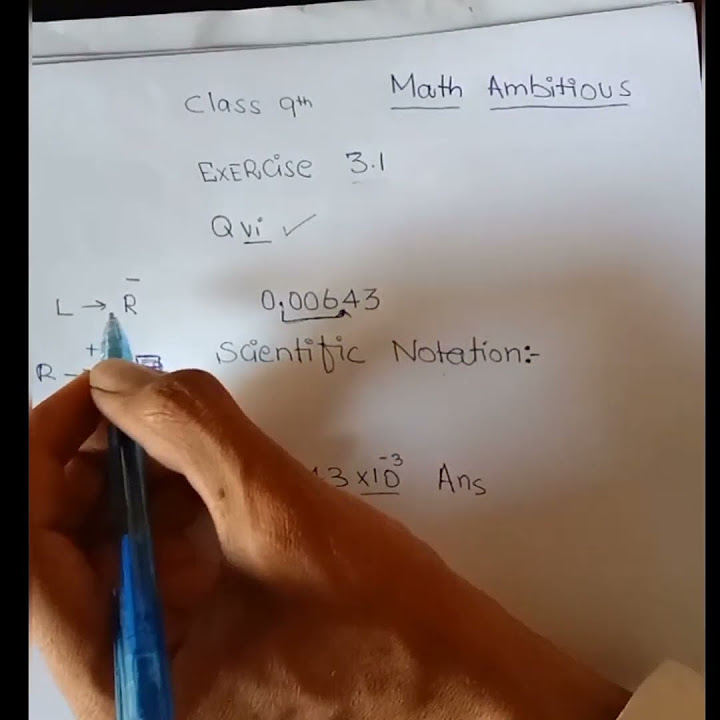 Class 9th Math Ambitious
EXERCise 3.1
Q vi ✓
L → R̄
0.00643
+
R →
Scientific Notation:-
3 ×10⁻³ Ans